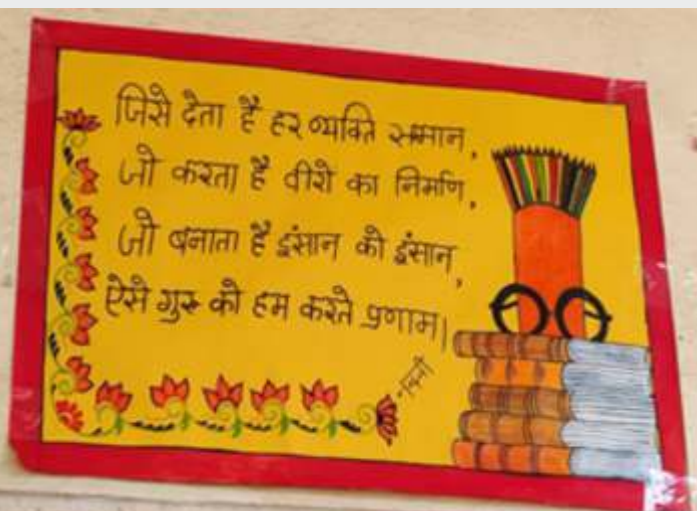 जिसे देता है हर व्यक्ति सम्मान,
जो करता है वीरो का निर्माण,
जो बनाता है इंसान को इंसान,
ऐसे गुरु को हम करते प्रणाम।